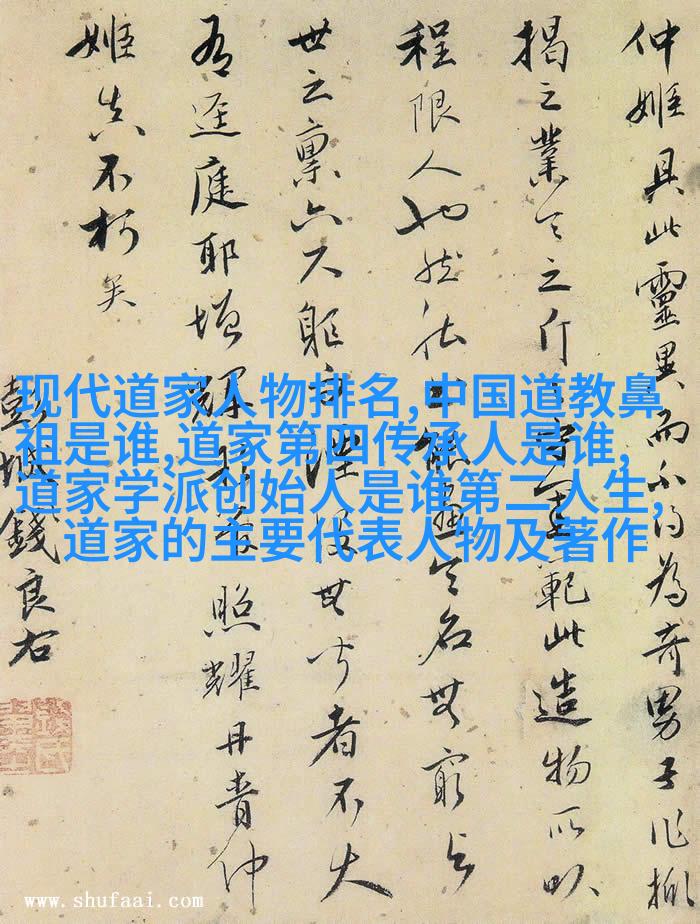 仲姬具此靈異而不得為奇男子作掀
揭之業天之斤範此造物所以
程限人也然能垂令名無窮与
世之禀六尺軀湮沒無聞者不大
有逕庭耶增輝照耀丹青仲
姬真不朽矣
彭城錢良右
现代道家人物排名,中国道教鼻
祖是谁,道家第四传承人是谁,
道家学派创始人是谁第二人生,
道家的主要代表人物及著作
www.shufaai.com